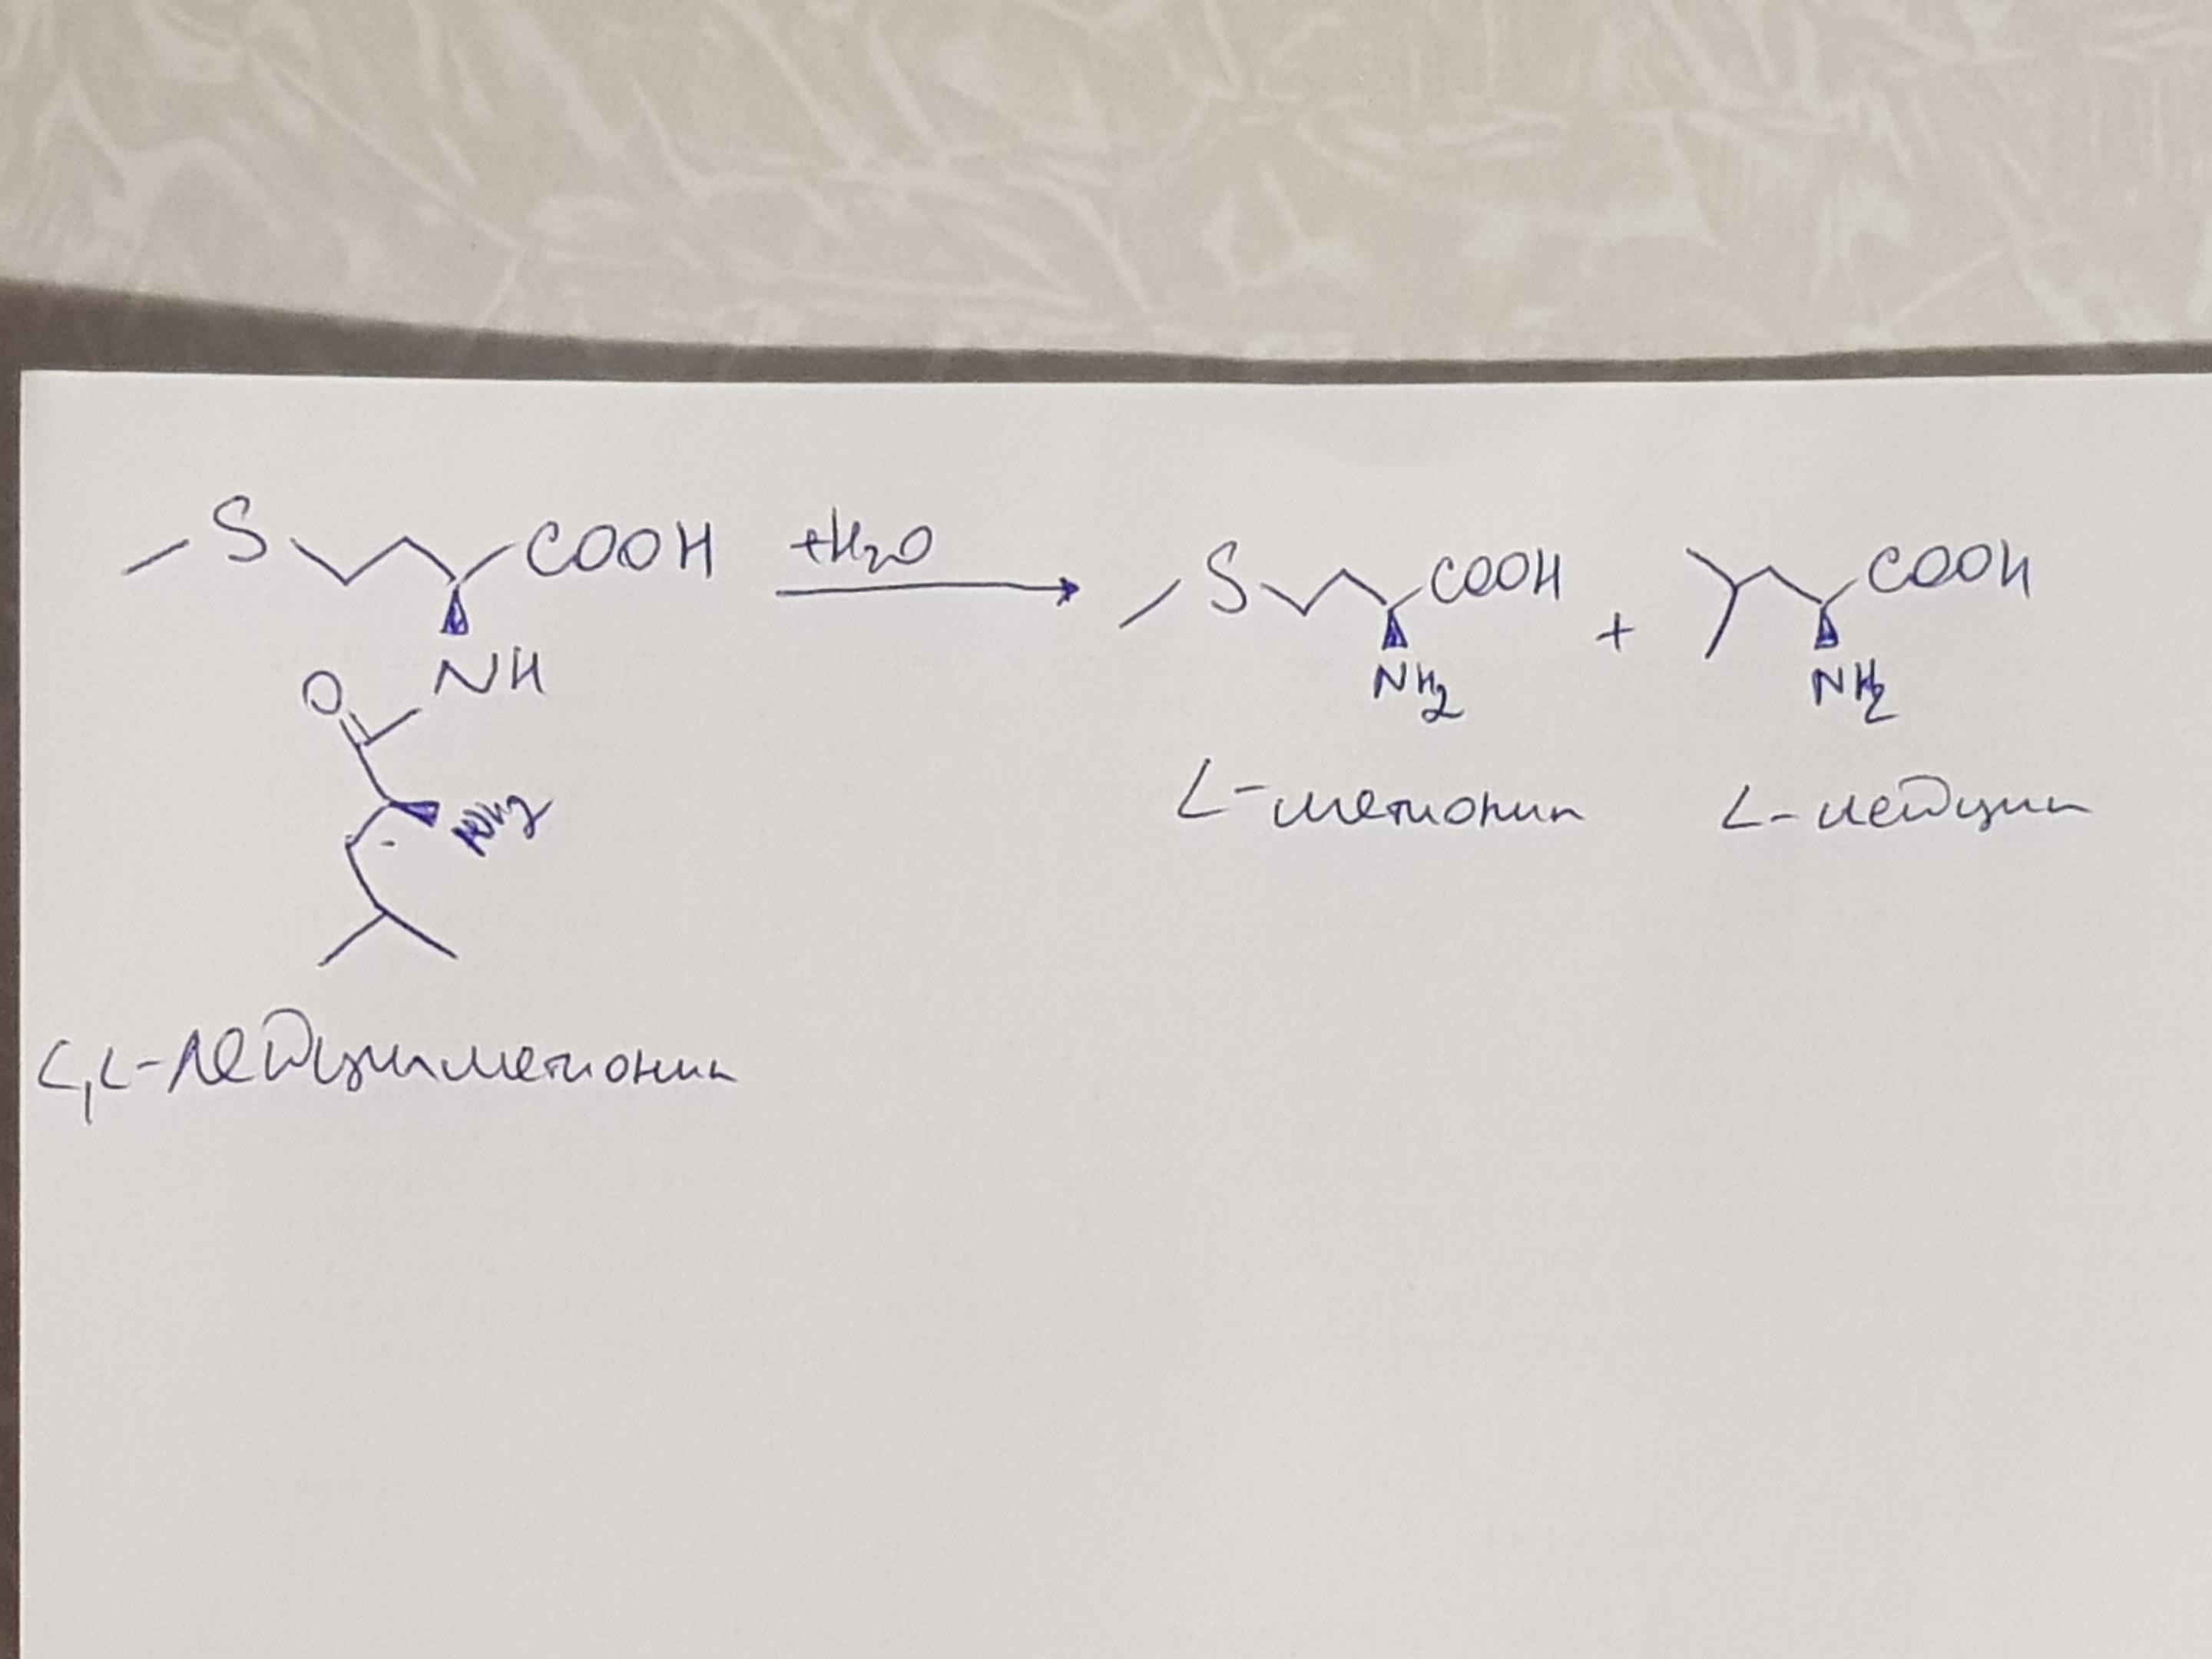 S COOH +H₂O S COOH + COOH
NH NH₂ NH₂
O
NH₂
L-метионин L-лейцин
L,L-Лейцилметионин